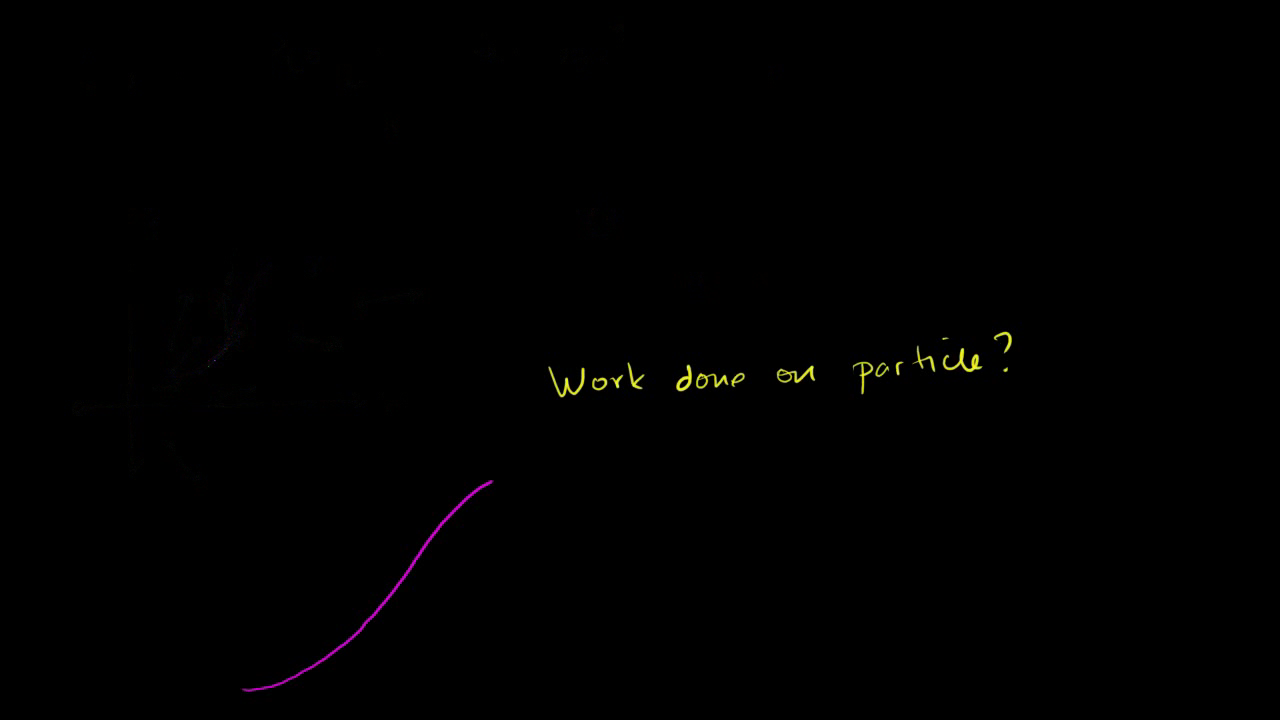 Work done on particle?